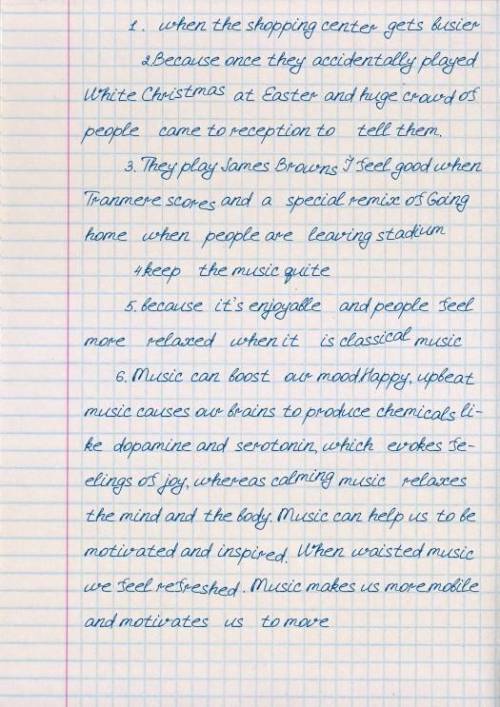 1. when the shopping center gets busier
2 Because once they accidentally played
White Christmas at Easter and huge crowd of
people came to reception to tell them.
3. They play James Browns I feel good when
Tranmere scores and a special remix of Going
home when people are leaving stadium
4 keep the music quite
5. because it's enjoyable and people feel
more relaxed when it is classical music
6. Music can boost our mood. Happy, upbeat
music causes our brains to produce chemicals li-
ke dopamine and serotonin, which evokes fe-
elings of joy, whereas calming music relaxes
the mind and the body. Music can help us to be
motivated and inspired. When waisted music
we feel refreshed. Music makes us more mobile
and motivates us to move